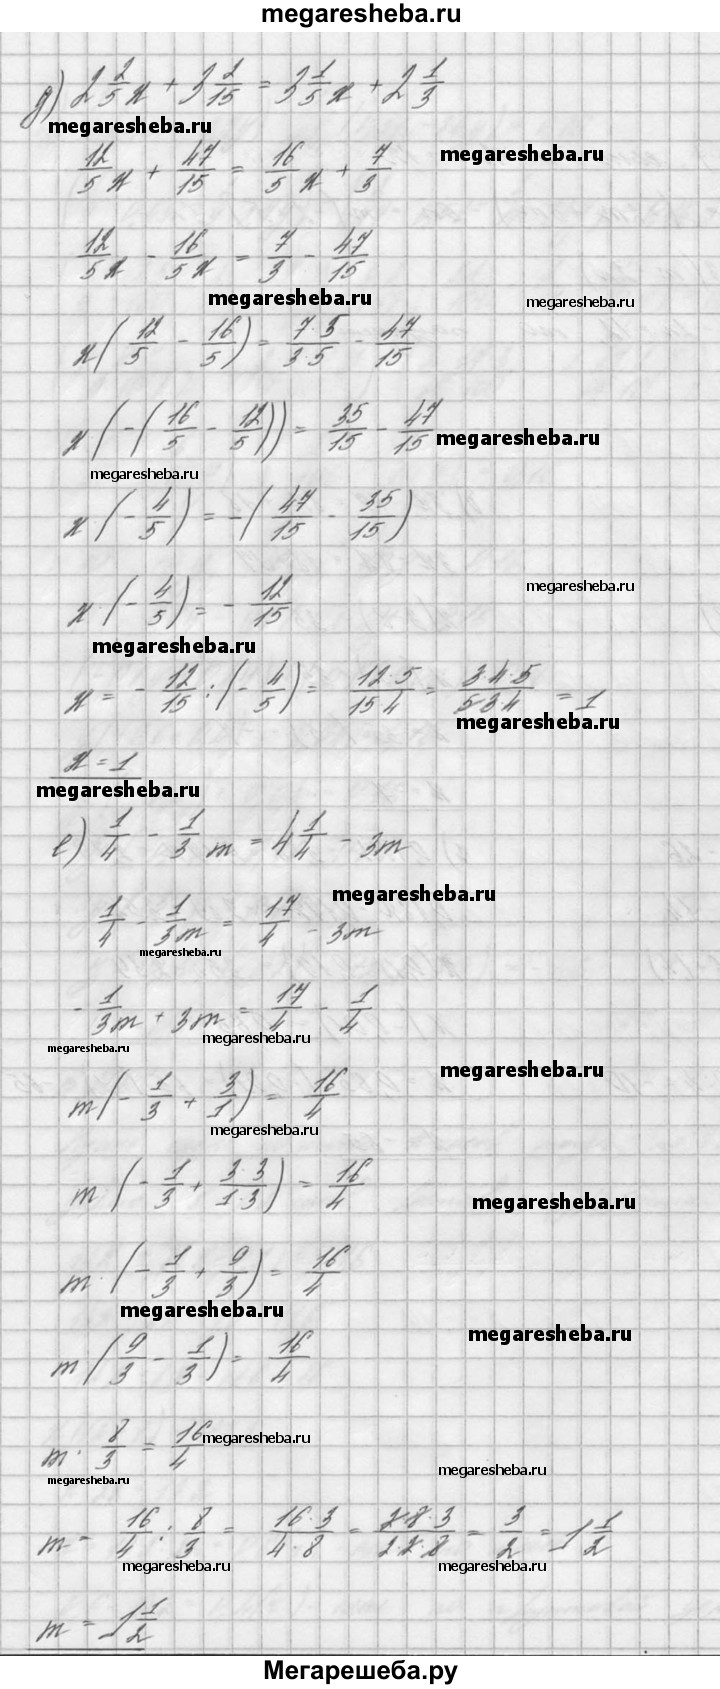 megaresheba.ru
д) 2 2/5 x + 3 2/15 = 3 1/5 x + 2 1/3
megaresheba.ru
12/5 x + 47/15 = 16/5 x + 7/3
megaresheba.ru
12/5 x - 16/5 x = 7/3 - 47/15
megaresheba.ru
megaresheba.ru
x ( 12/5 - 16/5 ) = 7·5/3·5 - 47/15
x ( - ( 16/5 - 12/5 ) ) = 35/15 - 47/15
megaresheba.ru
megaresheba.ru
x ( - 4/5 ) = - ( 47/15 - 35/15 )
megaresheba.ru
x · ( - 4/5 ) = - 12/15
megaresheba.ru
x = - 12/15 : ( - 4/5 ) = 12·5/15·4 = 3·4·5/5·3·4 = 1
megaresheba.ru
x = 1
megaresheba.ru
е) 1/4 - 1/3 m = 4 1/4 - 3m
megaresheba.ru
1/4 - 1/3 m = 17/4 - 3m
megaresheba.ru
- 1/3 m + 3m = 17/4 - 1/4
megaresheba.ru
megaresheba.ru
megaresheba.ru
m ( - 1/3 + 3/1 ) = 16/4
megaresheba.ru
m ( - 1/3 + 3·3/1·3 ) = 16/4
megaresheba.ru
m · ( - 1/3 + 9/3 ) = 16/4
megaresheba.ru
megaresheba.ru
m ( 9/3 - 1/3 ) = 16/4
m · 8/3 = 16/4
megaresheba.ru
megaresheba.ru
megaresheba.ru
m = 16/4 : 8/3 = 16·3/4·8 = 2·8·3/2·2·8 = 3/2 = 1 1/2
megaresheba.ru
megaresheba.ru
m = 1 1/2
Мегарешеба.ру